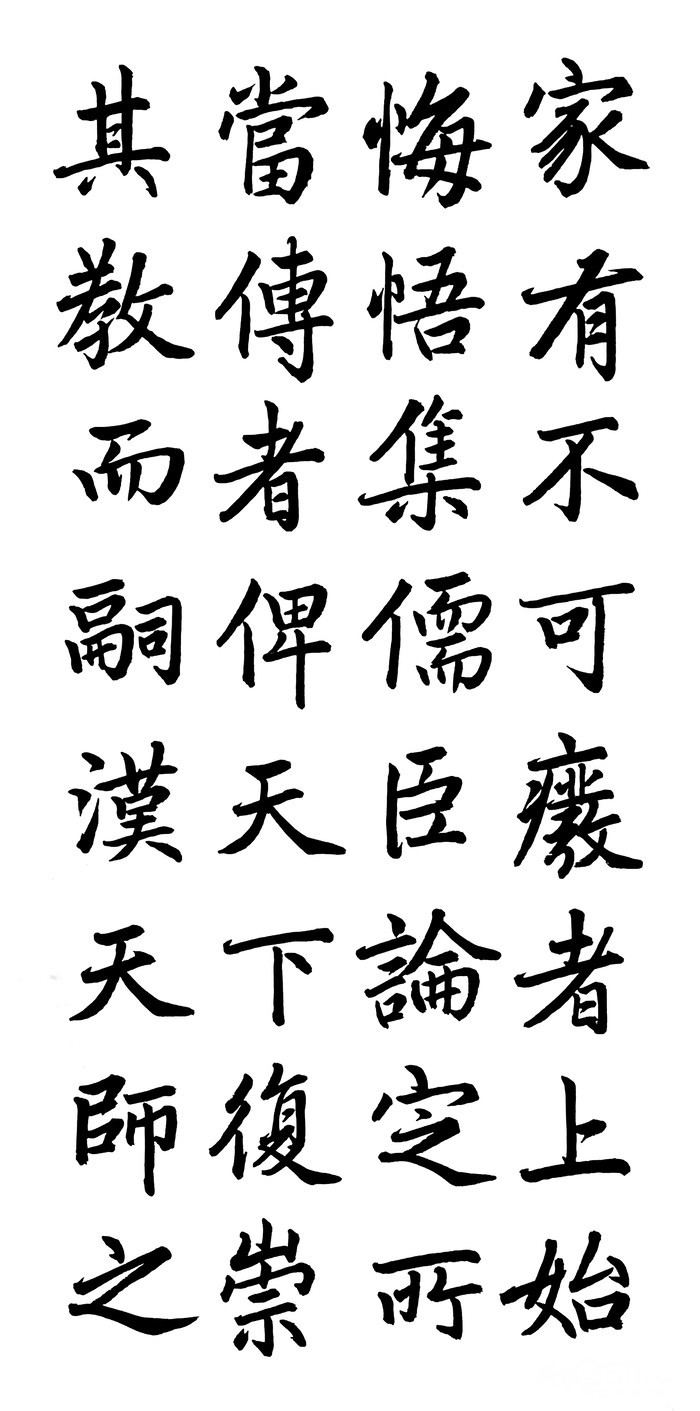 家有不可癈者上始
悔悟集儒臣論定所
當傳者俾天下復崇
其教而嗣漢天師之